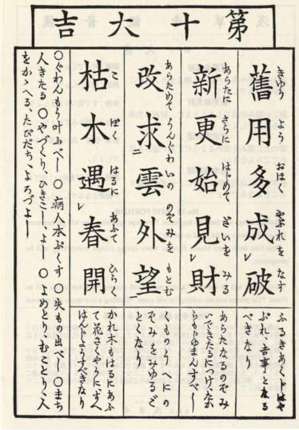 第十大吉
舊用多成破
きゆう よう おほく やぶれを なす
ふるきあくじはや
ぶれ、吉事と在る
べきなり
新更始見財
あらたに さらに はじめて ざいを みる
あらたなるのぞみ
いできたるにつけ、たか
すべし
改求雲外望
あらためて うんぐわいの のぞみを もとむ
くものうへにの
ぞみをみるご
とくなり
枯木遇春開
こ ぼく はるに あふて ひらく
かれ木もはるにあふ
て花さくやうに、すへ
はんじやうすべきなり
○ぐわんもう叶ふべし ○病人本ぷくす ○失もの出べし ○まち
人きたる ○やづくり、ひきこし、よし ○よめとり、むことり、人
をかゝへる、たびだち、よろづよし